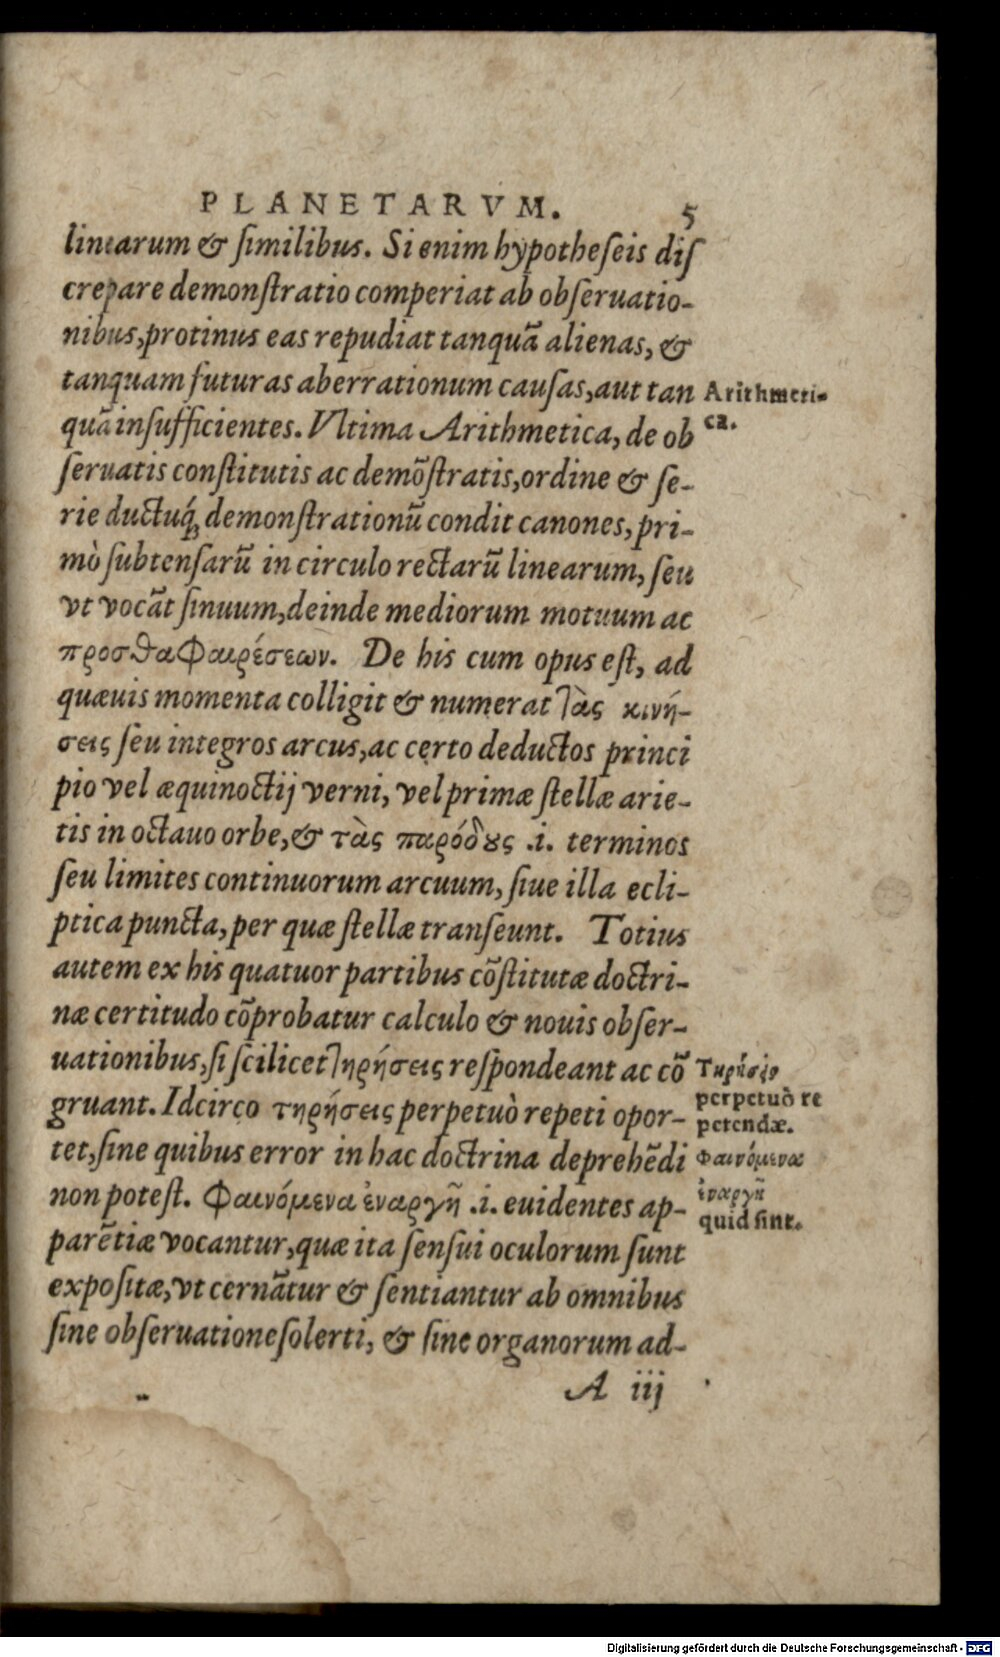 PLANETARVM. 5
linearum & ſimilibus. Si enim hypotheſeis diſ
crepare demonſtratio comperiat ab obſeruatio-
nibus, protinus eas repudiat tanquã alienas, &
tanquam futuras aberrationum cauſas, aut tan
quã inſufficientes. Vltima Arithmetica, de ob
ſeruatis conſtitutis ac demõſtratis, ordine & ſe-
rie ductuq́; demonſtrationũ condit canones, pri-
mò ſubtenſarũ in circulo rectarũ linearum, ſeu
vt vocãt ſinuum, deinde mediorum motuum ac
προσθαφαιρέσεων. De his cum opus eſt, ad
quæuis momenta colligit & numerat τὰς κινή-
σεις ſeu integros arcus, ac certo deductos princi
pio vel æquinoctij verni, vel primæ ſtellæ arie-
tis in octauo orbe, & τὰς παρόδους .i. terminos
ſeu limites continuorum arcuum, ſiue illa ecli-
ptica puncta, per quæ ſtellæ tranſeunt. Totius
autem ex his quatuor partibus cõſtitutæ doctri-
næ certitudo cõprobatur calculo & nouis obſer-
uationibus, ſi ſcilicet τηρήσεις reſpondeant ac cõ
gruant. Idcirco τηρήσεις perpetuò repeti opor-
tet, ſine quibus error in hac doctrina deprehẽdi
non poteſt. Φαινόμενα ἐναργῆ .i. euidentes ap-
parẽtiæ vocantur, quæ ita ſenſui oculorum ſunt
expoſitæ, vt cernãtur & ſentiantur ab omnibus
ſine obſeruatione ſolerti, & ſine organorum ad-
A iij
Arithmeti-
ca.
Τηρήσεις
perpetuò re
petendæ.
Φαινόμενα
ἐναργῆ
quid ſint.
Digitalisierung gefördert durch die Deutsche Forschungsgemeinschaft - DFG